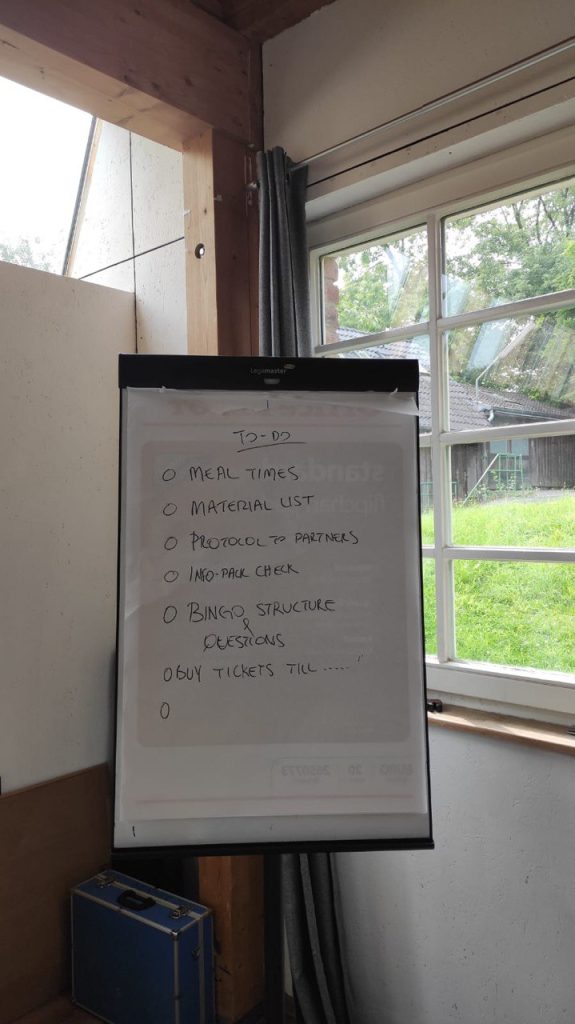 Legamaster
TO-DO
O MEAL TIMES
O MATERIAL LIST
O PROTOCOL TO PARTNERS
O INFO-PACK CHECK
O BINGO STRUCTURE
&
QUESTIONS
O BUY TICKETS TILL .....
O